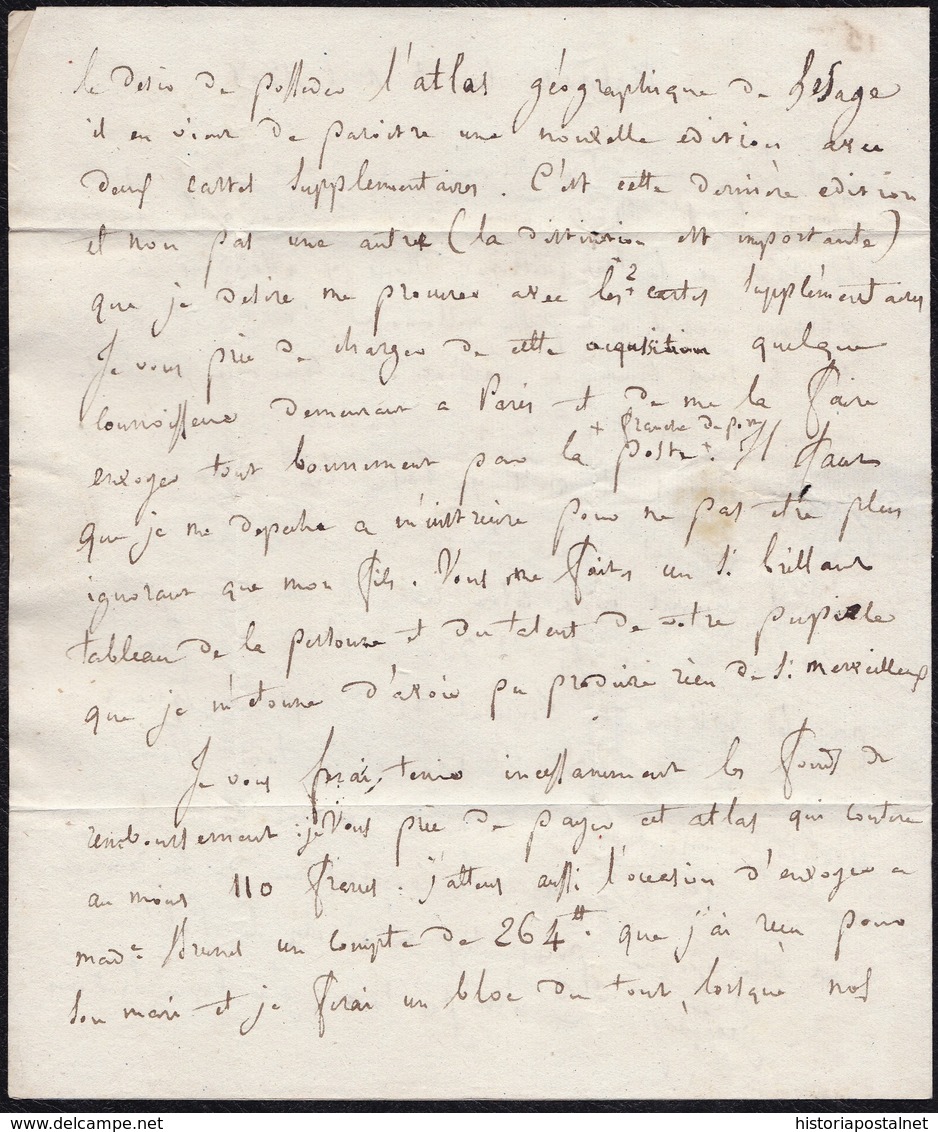 le desir de posseder l'atlas géographique de Lesage
il en vient de paroitre une nouvelle edition avec
deux cartes supplementaires. C'est cette dernière edition
et non pas une autre (la distinction est importante)
que je desire me procurer avec les 2 cartes supplémentaires
Je vous prie de charger de cette acquisition quelque
connoisseur demeurant a Paris et de me la faire
+ franche de port
envoyer tout bonnement par la poste +. Il faut
que je me depeche a m'instruire pour ne pas etre plus
ignorant que mon fils. Vous me faites un si brillant
tableau de la personne et du talent de votre pupille
que je m'étonne d'avoir pu produire rien de si merveilleux
Je vous ferai tenir incessamment les fonds de
remboursement. je vous prie de payer cet atlas qui coutera
au moins 110 francs. j'attens aussi l'occasion d'envoyer a
mad.e Brunel un compte de 264 tt. que j'ai reçu pour
son mari et je ferai un bloc du tout, lorsque nos
historiapostalnet